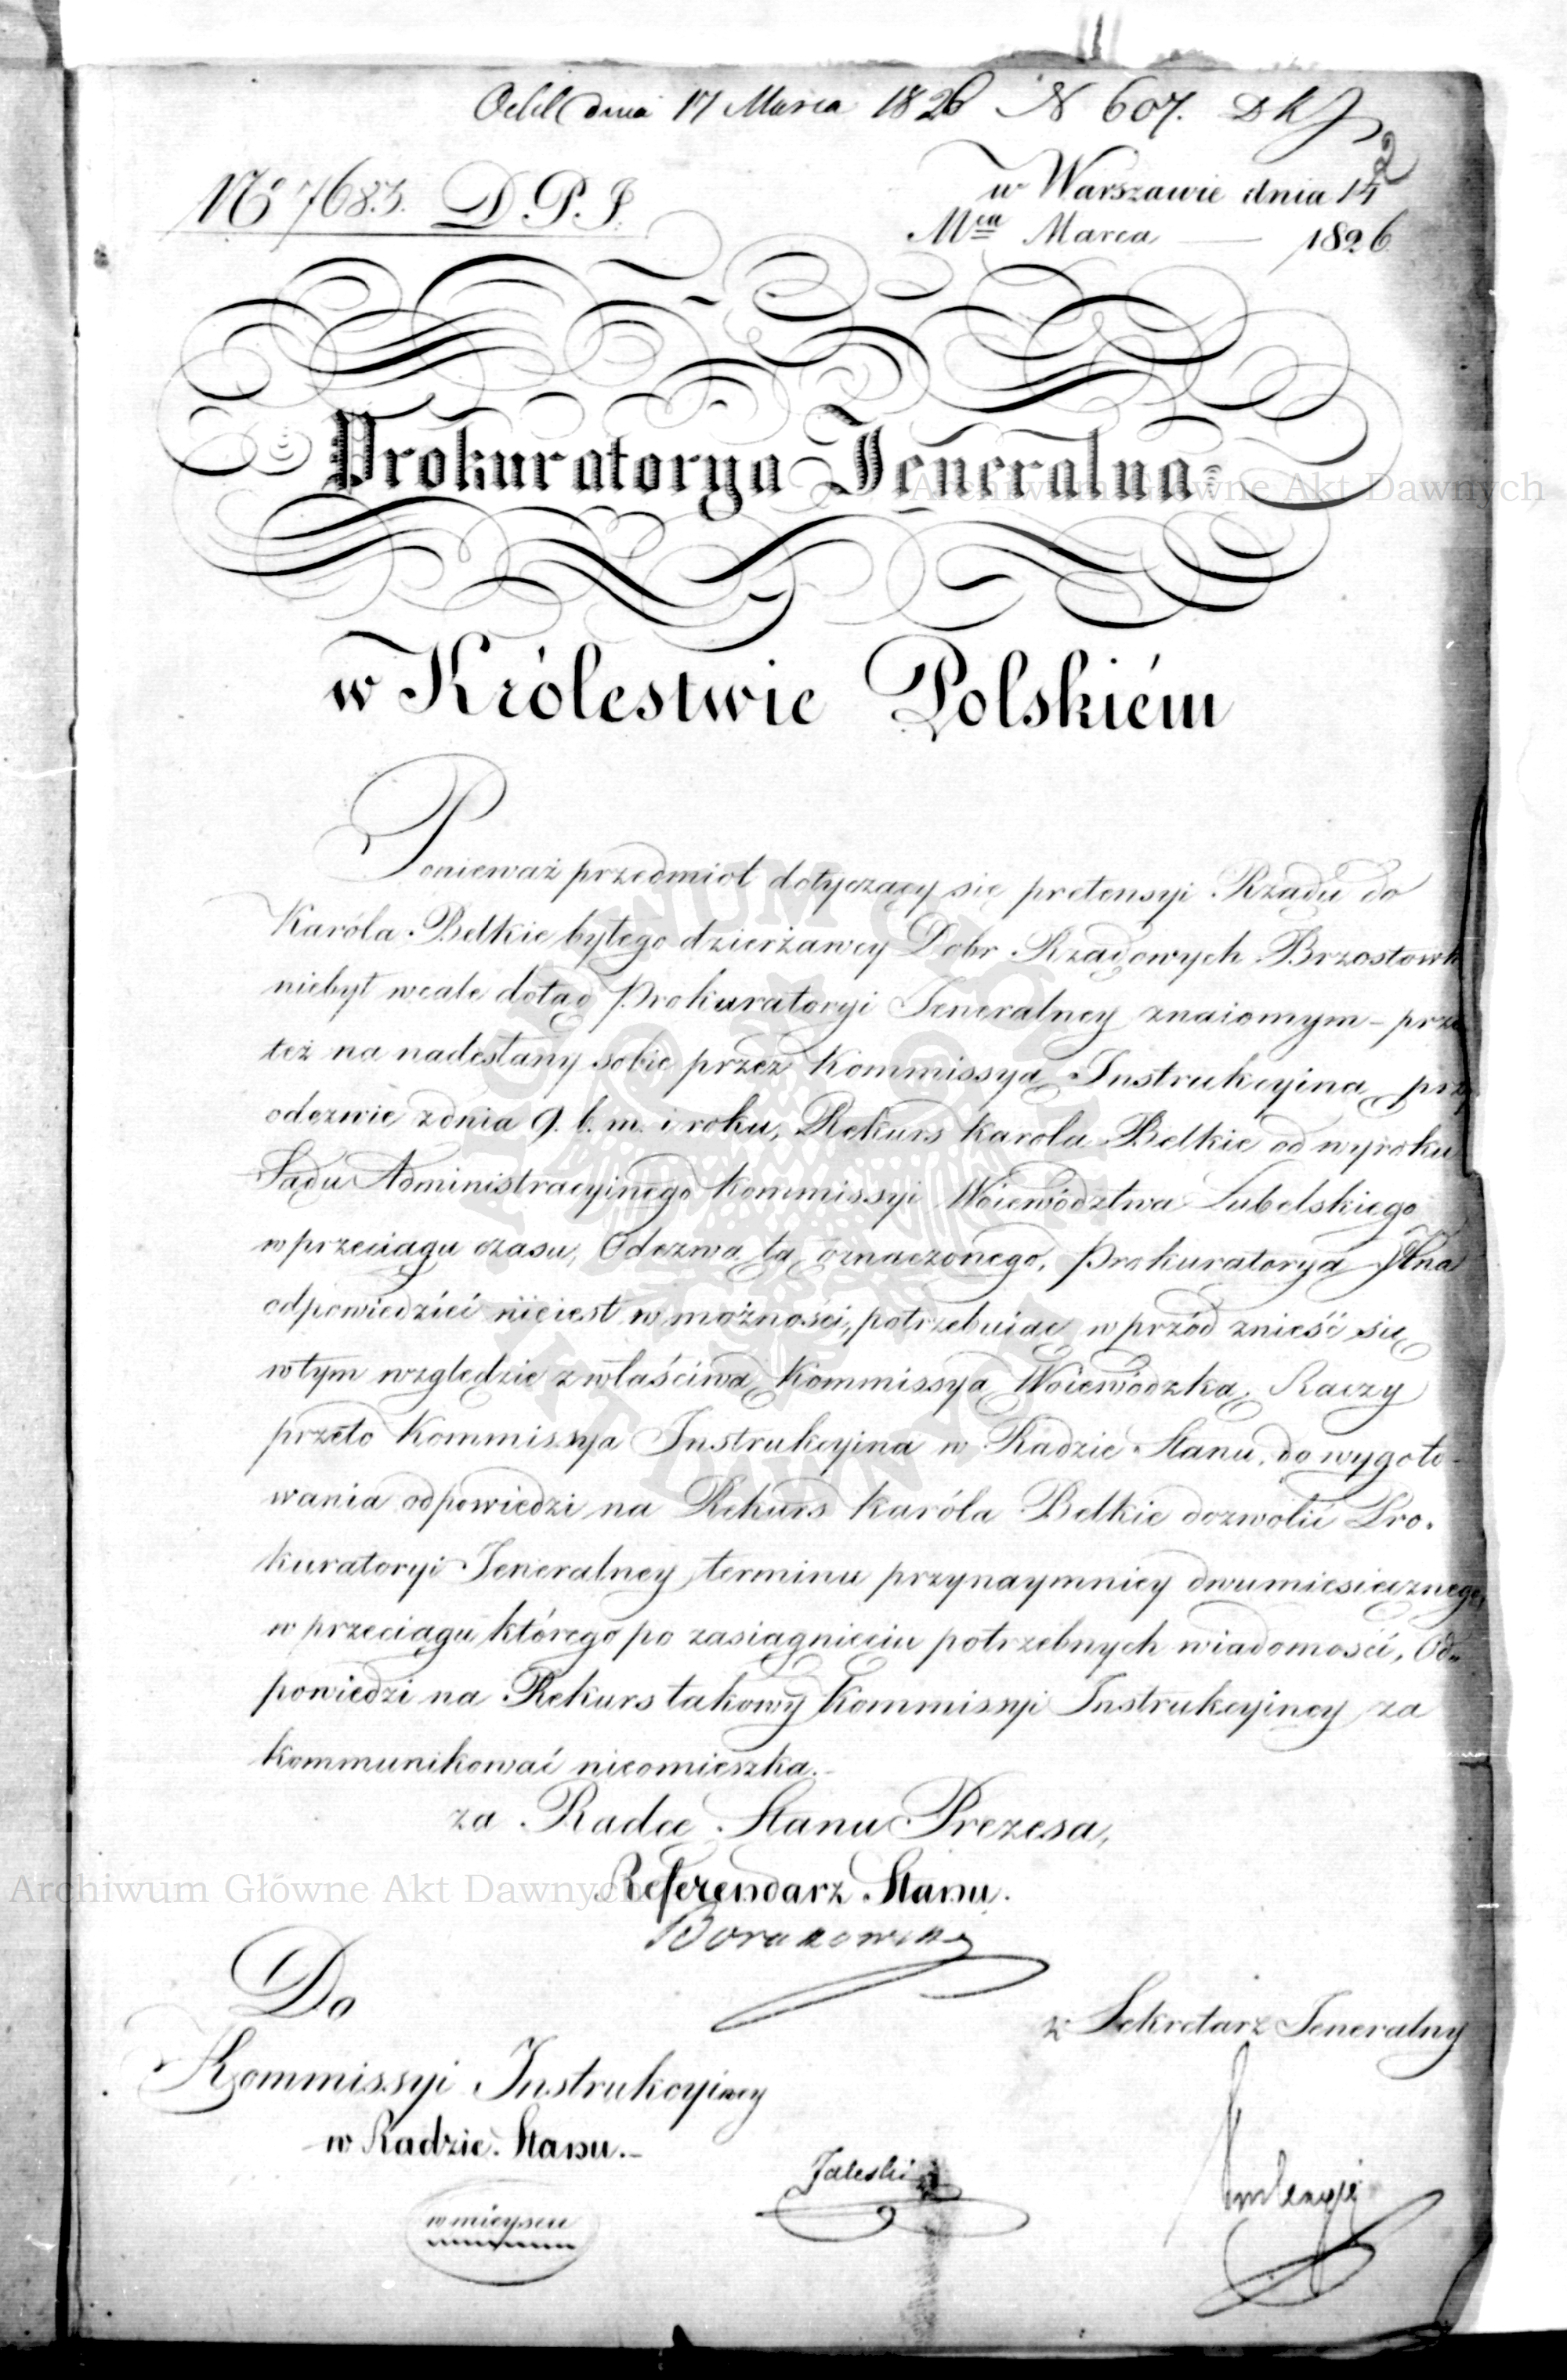 Odeb dnia 17 Marca 1826 N 607. DKJ
2
No 7683. D.P.J.
w Warszawie dnia 14
Mca Marca — 1826
Prokuratorya Jeneralna
w Królestwie Polskiém
Ponieważ przedmiot dotyczący się pretensyi Rządu do
Karóla Betkie byłego dzierżawcy Dobr Rządowych Brzostowk
niebył wcale dotąd Prokuratoryi Jeneralney znaiomym – prze
też na nadesłany sobie przez Kommissyą Instrukcyiną przy
odezwie z dnia 9. b. m. i roku, Rekurs Karola Betkie od wyroku
Sądu Administracyinego Kommissyi Woiewództwa Lubelskiego
w przeciągu czasu, Odezwą tą oznaczonego, Prokuratorya Jlna
odpowiedzieć nieiest w możności, potrzebuiąc w przód znieść się
w tym względzie z właściwą Kommissyą Woiewódzką. Raczy
przeto Kommissya Instrukcyina w Radzie Stanu, do wygoto-
wania odpowiedzi na Rekurs Karóla Betkie dozwolić Pro-
kuratoryi Jeneralney terminu przynaymniey dwumiesięcznego,
w przeciągu którego po zasiągnięciu potrzebnych wiadomości, Od-
powiedzi na Rekurs takowy Kommissyi Instrukcyiney za
kommunikować nieomieszka.–
za Radcę Stanu Prezesa,
Referendarz Stanu.
Do
z Sekretarz Jeneralny
Kommissyi Instrukcyiney
w Radzie Stanu.–
w mieyscu
Zaleski
Archiwum Główne Akt Dawnych
Archiwum Główne Akt Dawnych
ARCHIWUM GŁÓWNE AKT DAWNYCH